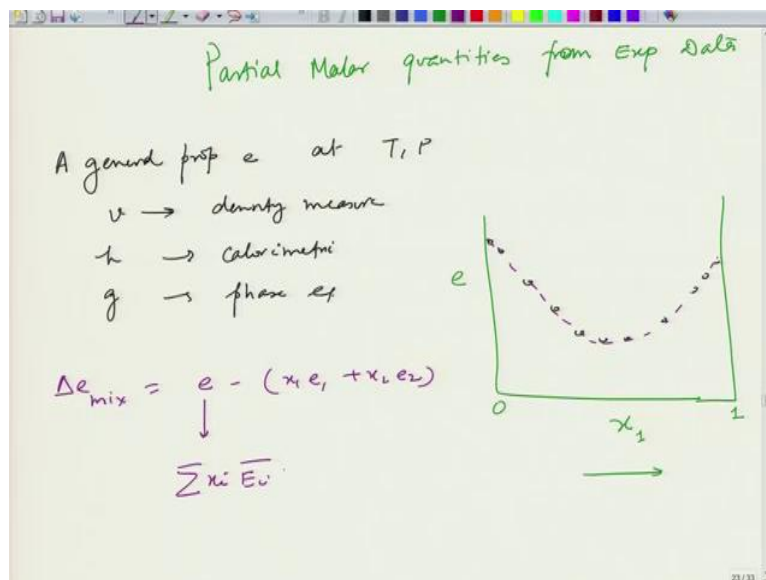 Partial Molar quantities from Exp Data
A general prop e at T, P
v → density measure
h → calorimetri
g → phase eq
Δe mix = e - (x₁ e₁ + x₂ e₂)
↓
∑ xi Ēi
e
0
1
x₁
→
23 / 33